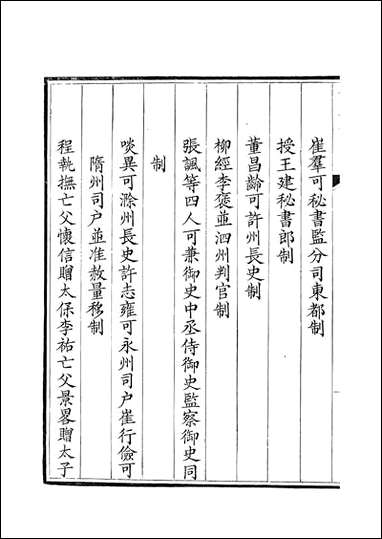 崔羣可秘書監分司東都制
授王建秘書郎制
董昌齡可許州長史制
柳經李褒並泗州判官制
張諷等四人可兼御史中丞侍御史監察御史同
制
啖異可滁州長史許志雍可永州司户崔行儉可
隋州司户並准赦量移制
程執撫亡父懷信贈太保李祐亡父景畧贈太子